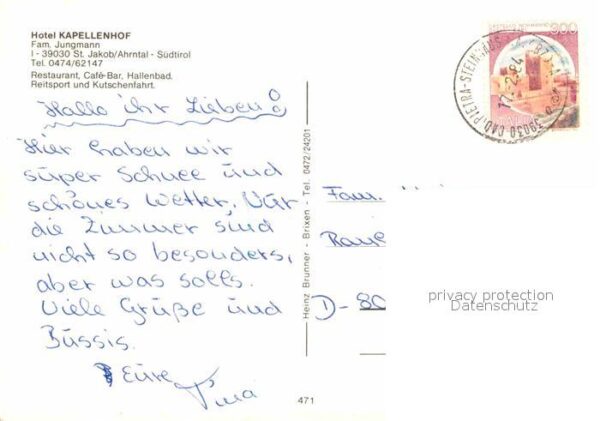 Hotel KAPELLENHOF
Fam. Jungmann
I - 39030 St. Jakob/Ahrntal - Südtirol
Tel. 0474/62147
Restaurant, Café-Bar, Hallenbad,
Reitsport und Kutschenfahrt.
Hallo ihr Lieben!
Hier haben wir
super Schnee und
schönes Wetter. Nur
die Zimmer sind
nicht so besonders,
aber was solls.
Viele Grüße und
Bussis.
Eure
Heinz Brunner - Brixen - Tel. 0472/24201
471
300
39030 CAD PIETRA-STEINHAUS
Fam.
D-80
privacy protection
Datenschutz